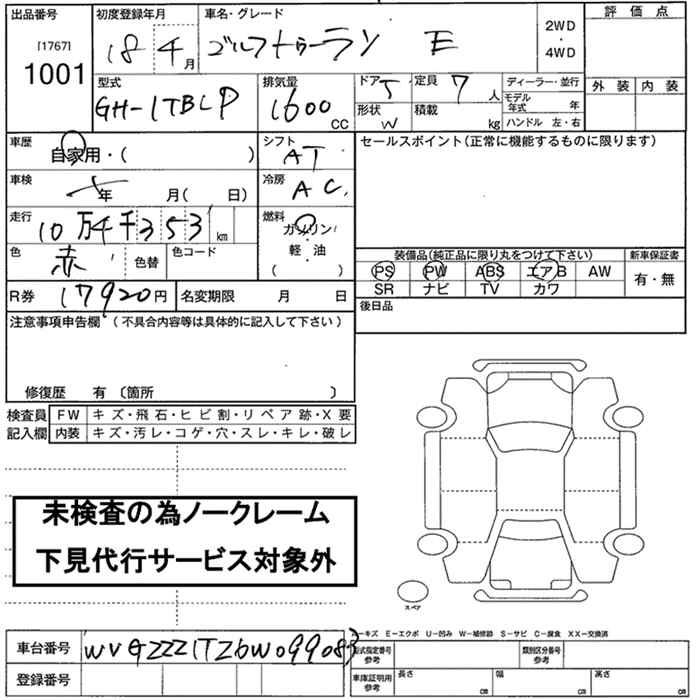 出品番号 初度登録年月 車名・グレード 評価点
[1767]
1001 18年4月 ゴルフトゥーラン E 2WD・4WD
型式 排気量 ドア 5 定員 7人 ディーラー・並行 外装 内装
GH-1TBLP 1600CC 形状 W 積載 kg モデル年式 年
ハンドル 左・右
車歴 自家用・( ) シフト AT セールスポイント(正常に機能するものに限ります)
車検 年 月( 日) 冷房 AC
走行 10万4千353km 燃料 ガソリン・軽油・( )
色 赤 色替 色コード 装備品(純正品に限り丸をつけて下さい) 新車保証書
PS PW ABS エアB AW 有・無
SR ナビ TV カワ
R券 17920円 名変期限 月 日 後日品
注意事項申告欄(不具合内容等は具体的に記入して下さい)
修復歴 有 〔箇所 〕
検査員 FW キズ・飛石・ヒビ割・リペア跡・X要
記入欄 内装 キズ・汚レ・コゲ・穴・スレ・キレ・破レ
未検査の為ノークレーム
下見代行サービス対象外
スペア
A-キズ E-エクボ U-凹み W-補修跡 S-サビ C-腐食 XX-交換済
車台番号 WVGZZZ1TZ6W099083 型式指定番号 参考 類別区分番号 参考
登録番号 車庫証明用 参考 長さ cm 幅 cm 高さ cm